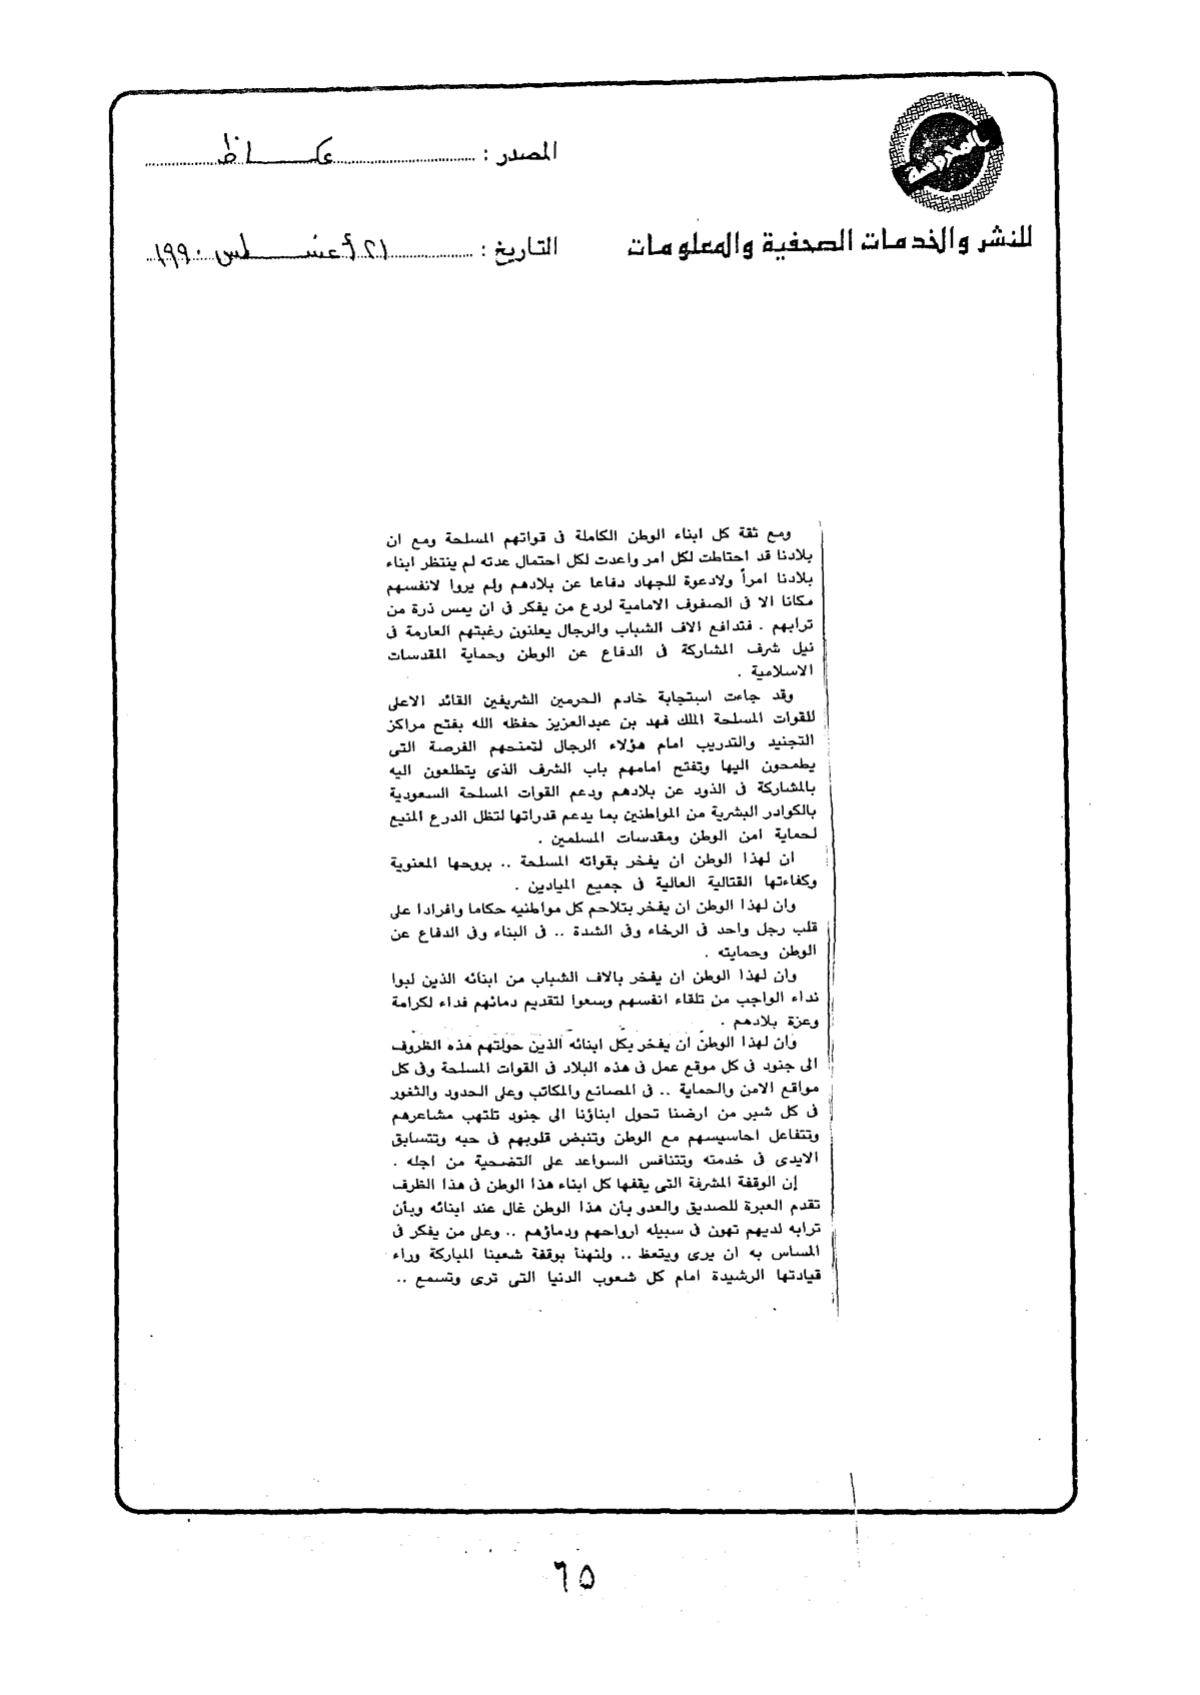 المصدر : عكاظ
للنشر والخدمات الصحفية والمعلومات
التاريخ : ٢١ أغسطس ١٩٩٠
ومع ثقة كل ابناء الوطن الكاملة فى قواتهم المسلحة ومع ان
بلادنا قد احتاطت لكل امر واعدت لكل احتمال عدته لم ينتظر ابناء
بلادنا امراً ولادعوة للجهاد دفاعا عن بلادهم ولم يروا لانفسهم
مكانا الا فى الصفوف الامامية لردع من يفكر فى ان يمس ذرة من
ترابهم . فتدافع الاف الشباب والرجال يعلنون رغبتهم العارمة فى
نيل شرف المشاركة فى الدفاع عن الوطن وحماية المقدسات
الاسلامية .
وقد جاءت استجابة خادم الحرمين الشريفين القائد الاعلى
للقوات المسلحة الملك فهد بن عبدالعزيز حفظه الله بفتح مراكز
التجنيد والتدريب امام هؤلاء الرجال لتمنحهم الفرصة التى
يطمحون اليها وتفتح امامهم باب الشرف الذى يتطلعون اليه
بالمشاركة فى الذود عن بلادهم ودعم القوات المسلحة السعودية
بالكوادر البشرية من المواطنين بما يدعم قدراتها لتظل الدرع المنيع
لحماية امن الوطن ومقدسات المسلمين .
ان لهذا الوطن ان يفخر بقواته المسلحة .. بروحها المعنوية
وكفاءتها القتالية العالية فى جميع الميادين .
وان لهذا الوطن ان يفخر بتلاحم كل مواطنيه حكاما وافرادا على
قلب رجل واحد فى الرخاء وفى الشدة .. فى البناء وفى الدفاع عن
الوطن وحمايته .
وان لهذا الوطن ان يفخر بالاف الشباب من ابنائه الذين لبوا
نداء الواجب من تلقاء انفسهم وسعوا لتقديم دمائهم فداء لكرامة
وعزة بلادهم .
وان لهذا الوطن ان يفخر بكل ابنائه الذين حولتهم هذه الظروف
الى جنود فى كل موقع عمل فى هذه البلاد فى القوات المسلحة وفى كل
مواقع الامن والحماية .. فى المصانع والمكاتب وعلى الحدود والثغور
فى كل شبر من ارضنا تحول ابناؤنا الى جنود تلتهب مشاعرهم
وتتفاعل احاسيسهم مع الوطن وتنبض قلوبهم فى حبه وتتسابق
الايدى فى خدمته وتتنافس السواعد على التضحية من اجله .
إن الوقفة المشرفة التى يقفها كل ابناء هذا الوطن فى هذا الظرف
تقدم العبرة للصديق والعدو بأن هذا الوطن غال عند ابنائه وبأن
ترابه لديهم تهون فى سبيله ارواحهم ودماؤهم .. وعلى من يفكر فى
المساس به ان يرى ويتعظ .. ولنهنأ بوقفة شعبنا المباركة وراء
قيادتها الرشيدة امام كل شعوب الدنيا التى ترى وتسمع ..
٦٥